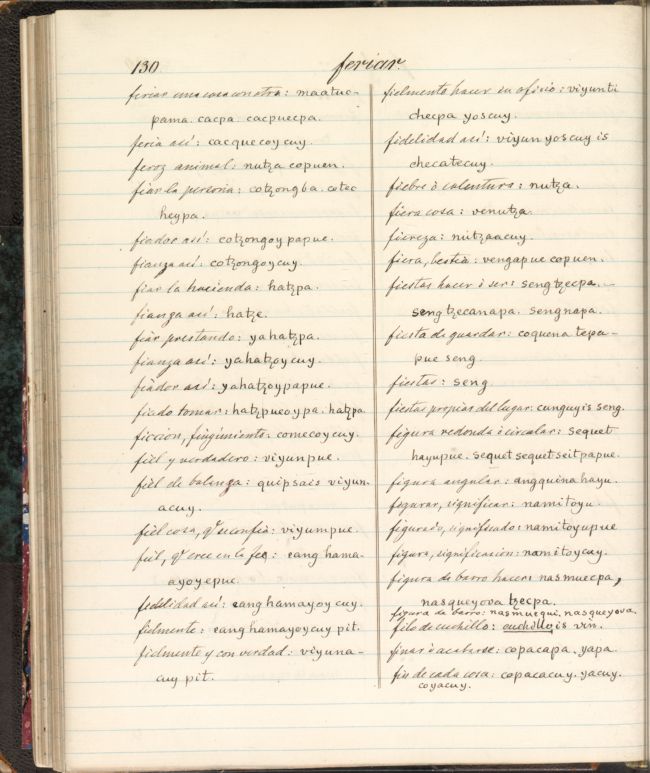 130
feriar.
feriar una cosa con otra: maatuc-
pama. cacpa. cacpuecpa.
feria asi: cacquecoycuy.
feroz animal: nutza copuen.
fiar la persona: cotzongba. cotec
heypa.
fiador asi: cotzongoypapue.
fianza asi: cotzongoycuy.
fiar la hacienda: hatzpa.
fianza asi: hatze.
fiar prestando: yahatzpa.
fianza asi: yahatzoycuy.
fiador asi: yahatzoypapue.
fiado tomar: hatzpucoypa. hatzpa
ficcion, fingimiento: comecoycuy.
fiel y verdadero: viyunpue.
fiel de balanza: quipsais viyun-
acuy.
fiel cosa, qe. se confia: viyumpue.
fiel, qe. cree en la fee: eang hama-
ayoyepue.
fidelidad asi: eang hamayoycuy.
fielmente: eang hamayoycuy pit.
fielmente y con verdad: viyuna-
cuy pit.
fielmente hacer su oficio: viyunti
checpa yoscuy.
fidelidad asi: viyun yoscuy is
checatecuy.
fiebre ò calentura: nutza.
fiera cosa: venutza.
fiereza: nutzaacuy.
fiera, bestia: vengapue copuen.
fiestas hacer ò ser: sengtzecpa.
sengtzecanapa. sengnapa.
fiesta de guardar: coquena tepa-
pue seng.
fiestas: seng.
fiestas propias del lugar: cunguyis seng.
figura redonda ò circular: sequet
hayupue. sequet sequet seitpapue.
figura angular: angquina hayu.
figurar, significar: namitoyu.
figurado, significado: namitoyupue
figura, significacion: namitoycuy.
figura de barro hacer: nasmuecpa,
nasqueyova tzecpa.
figura de barro: nasmuequi. nasqueyova.
filo de cuchillo: cuchillo is vin.
finar ò acabarse: copacapa. yapa.
fin de cada cosa: copacacuy. yacuy.
coyacuy.